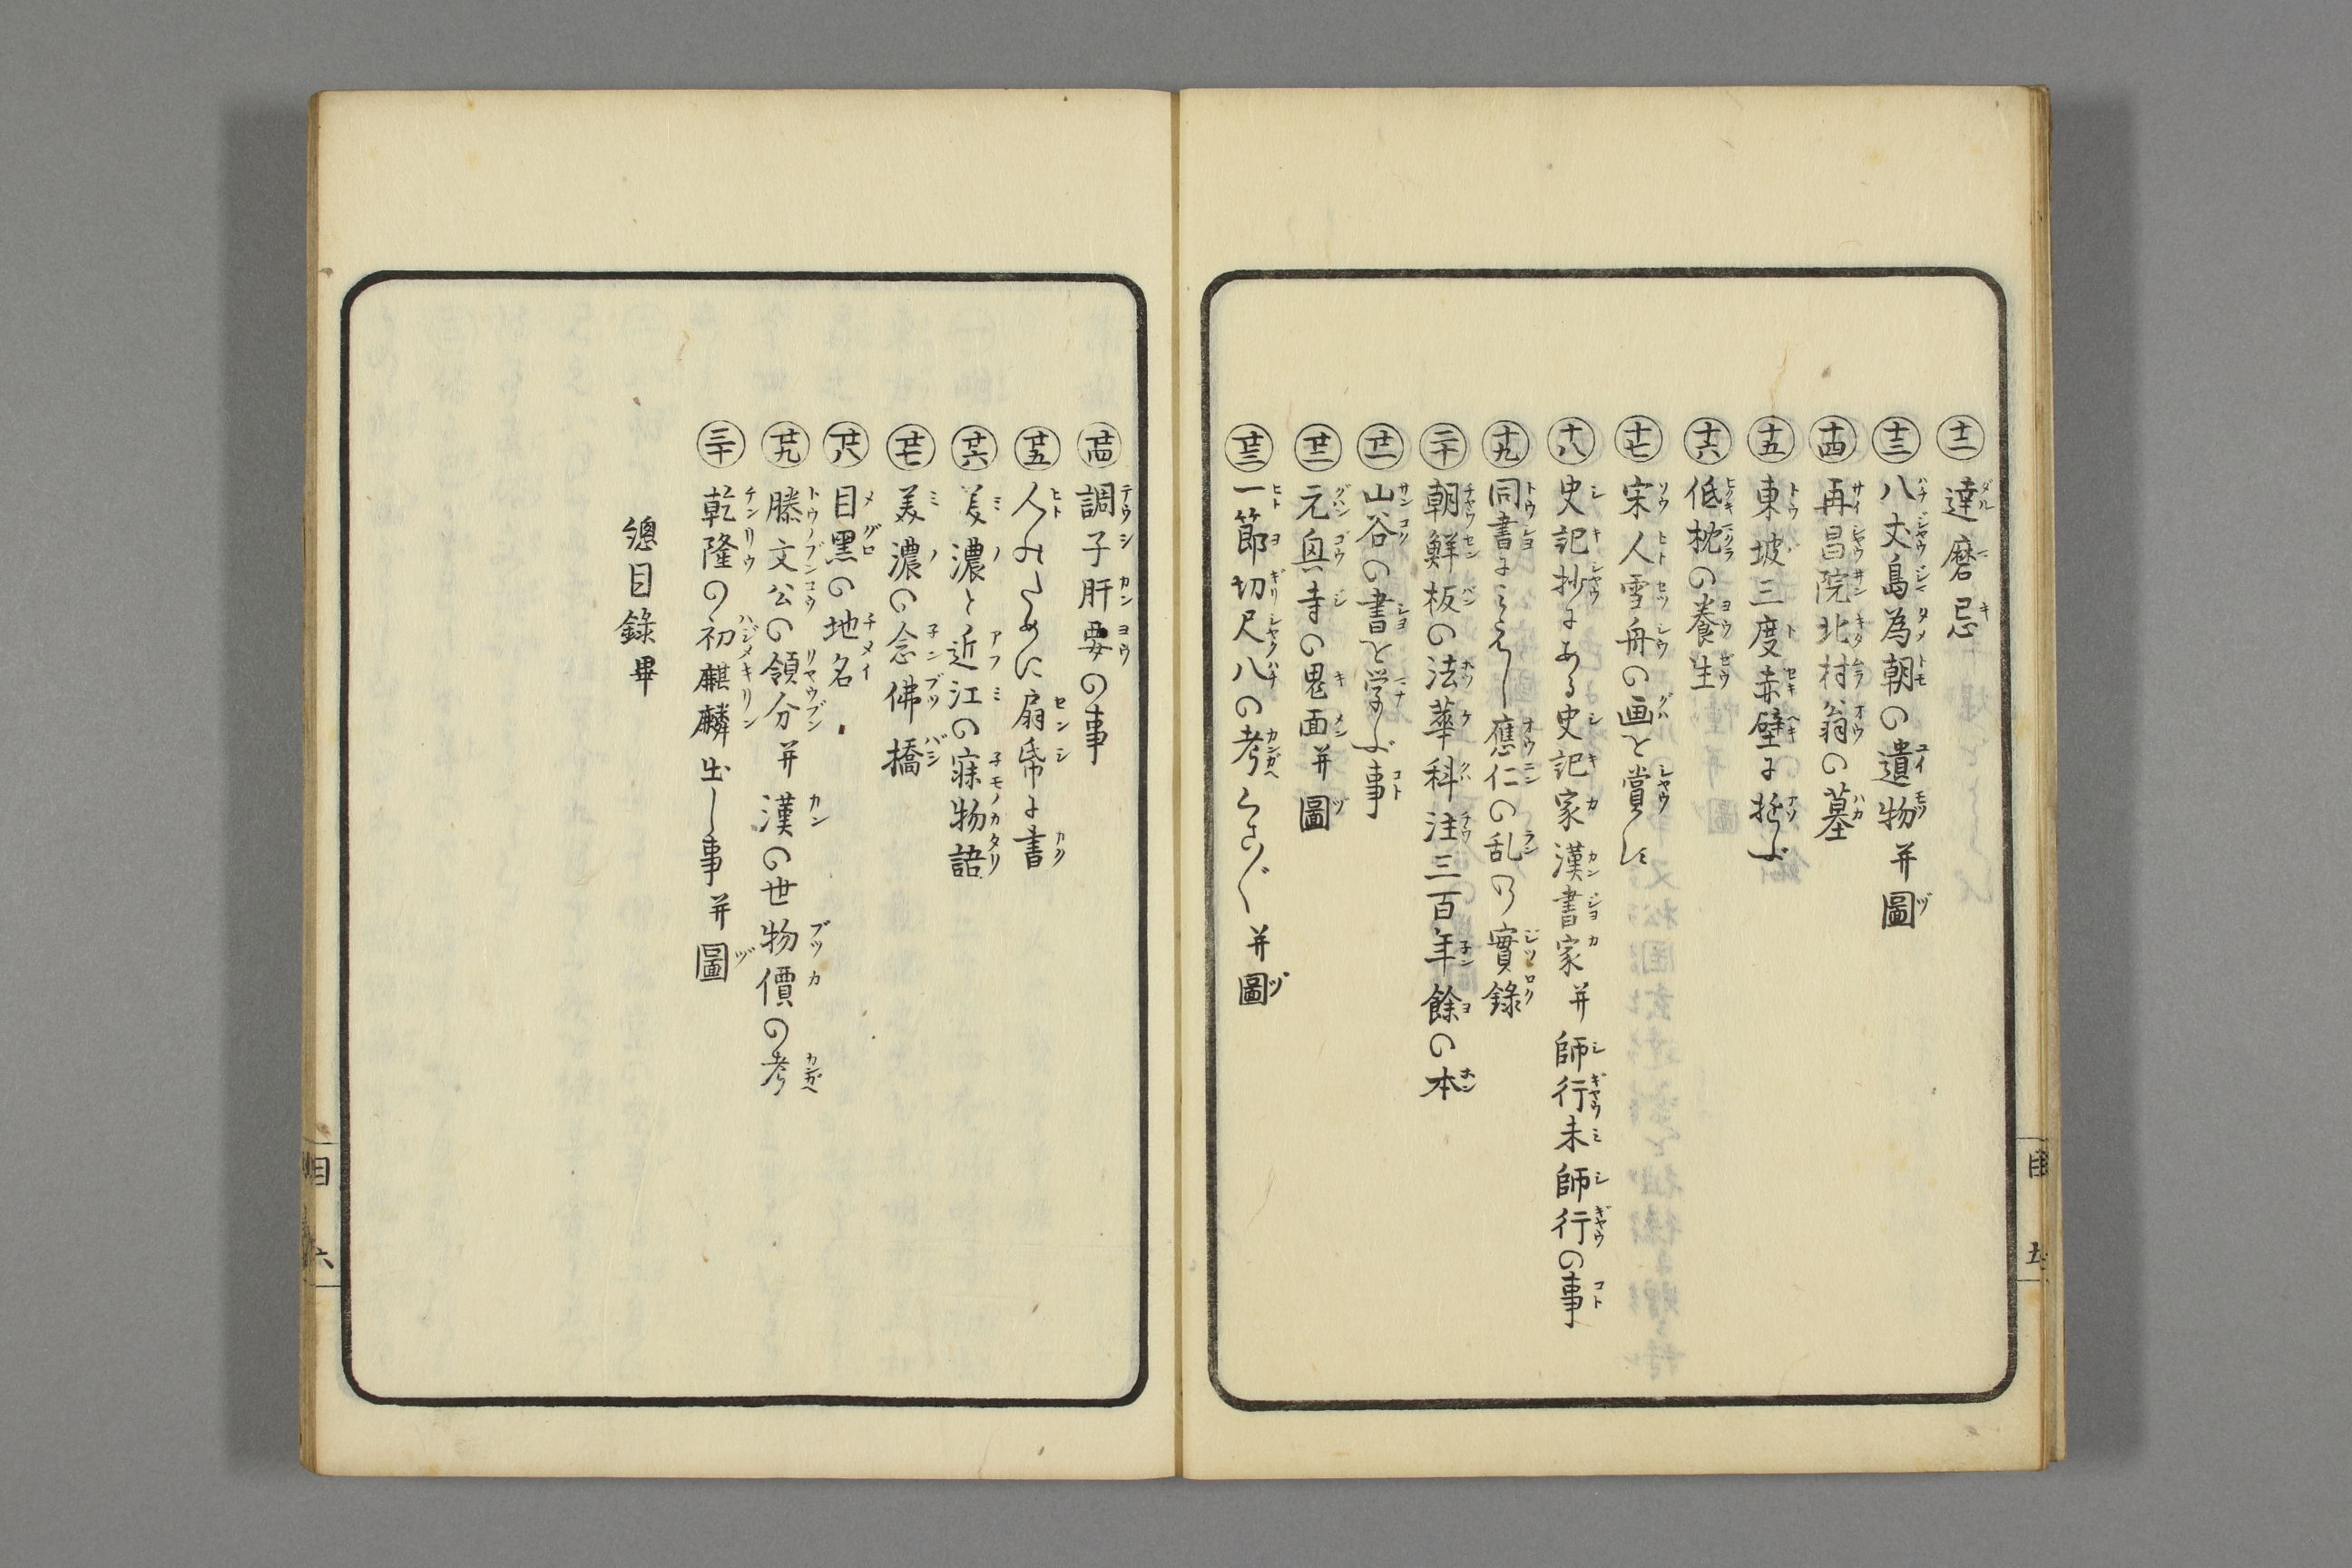 十二 達磨忌
十三 八丈島為朝の遺物并圖
十四 再昌院北村翁の墓
十五 東坡三度赤壁に遊ぶ
十六 低枕の養生
十七 宋人雪舟の画を賞す
十八 史記抄にある史記家漢書家并師行未師行の事
十九 同書に見えし應仁の乱の實錄
二十 朝鮮板の法華科注三百年餘の本
廿一 山谷の書を学ぶ事
廿二 元興寺の鬼面并圖
廿三 一節切尺八の考くさ〴〵并圖
目 五
廿四 調子肝要の事
廿五 人のために扇帋に書
廿六 美濃と近江の寐物語
廿七 美濃の念佛橋
廿八 目黑の地名
廿九 滕文公の領分并漢の世物價の考
三十 乾隆の初麒麟出し事并圖
總目錄畢
目 六